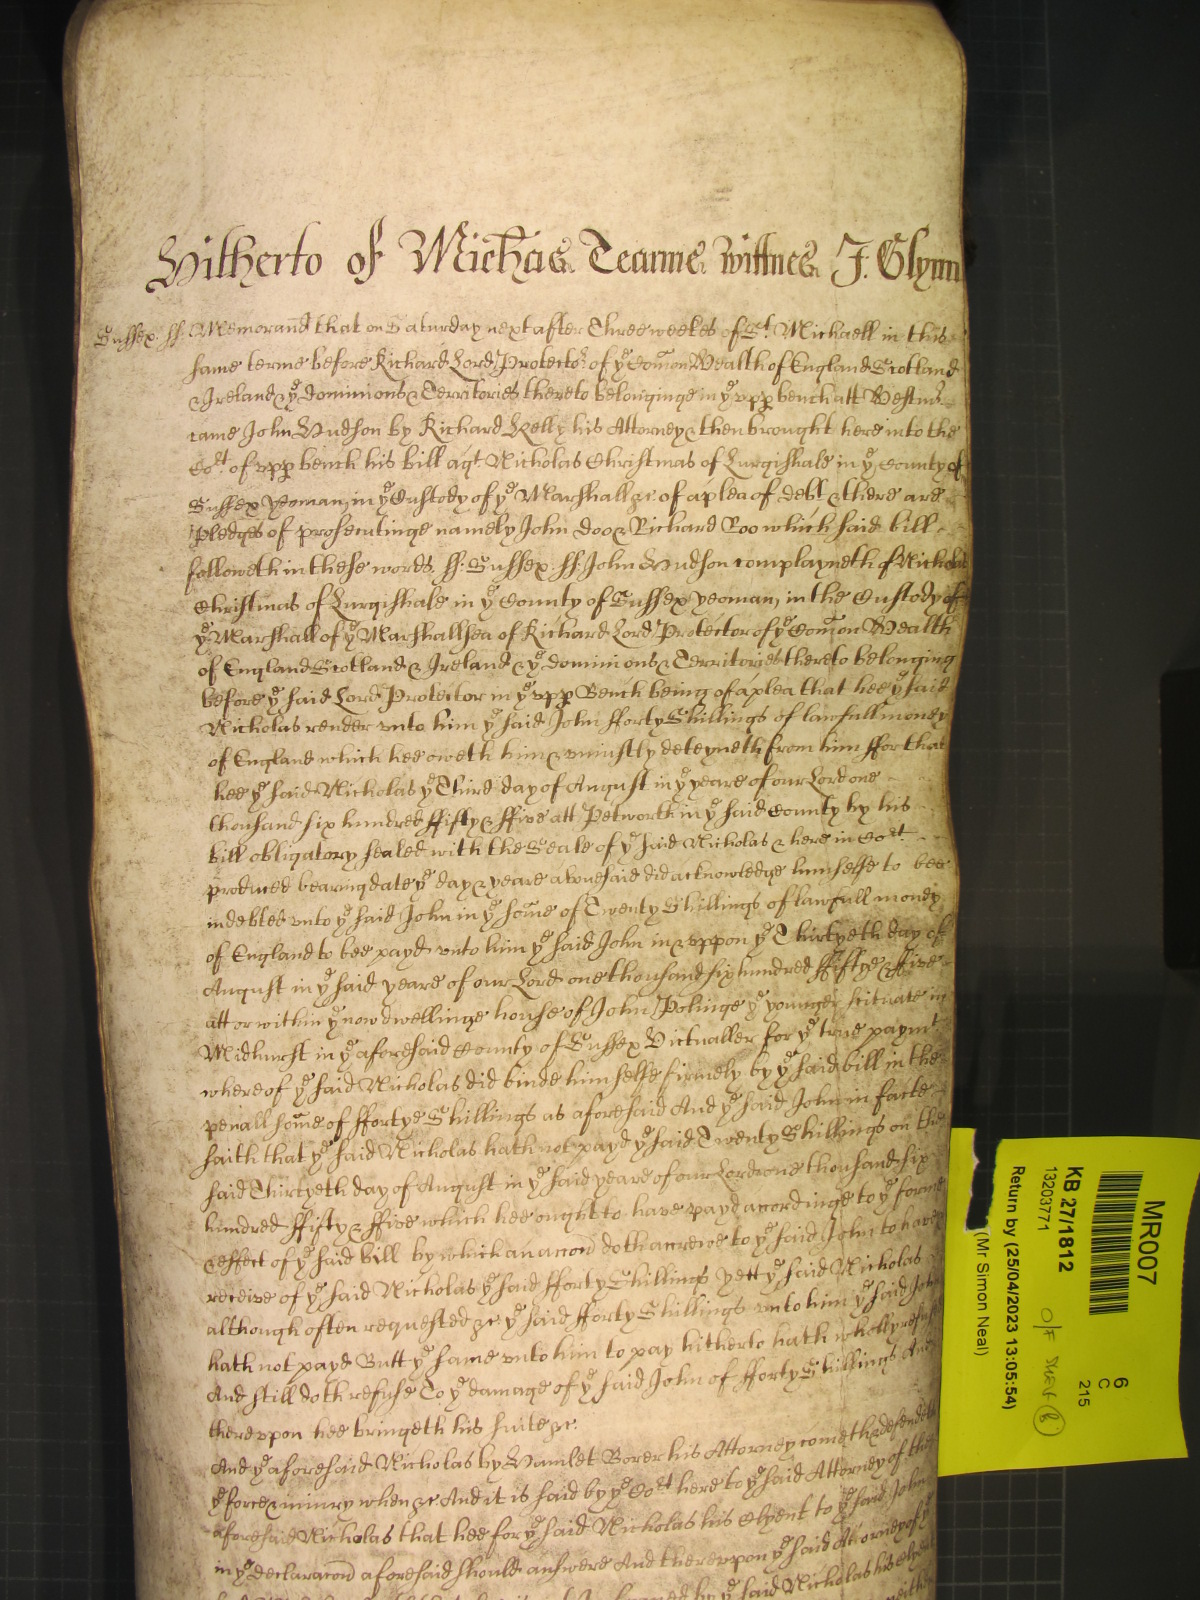 Hitherto of Michas Tearme Wittnes J. Glynn
Sussex ss. Memorand that on Saturday next after Three weekes of St. Michaell in this
same terme before Richard Lord Protector of ye Comon Wealth of England Scotland
& Ireland & ye dominions & Territories thereto belonginge in ye upp bench att Westmr
came John Hudson by Richard Kelly his Attorney & then brought here into the
Cort of upp bench his bill agt Nicholas Christmas of Lurgishale in ye County of
Sussex yeoman, in ye Custody of ye Marshall &c of a plea of debt & there are
pledges of prosecutinge namely John Doo & Richard Roo which said bill
followeth in these words ss. Sussex ss. John Hudson complayneth of Nicholas
Christmas of Lurgishale in ye County of Sussex yeoman, in the Custody of
ye Marshall of ye Marshallsea of Richard Lord Protector of ye Comon Wealth
of England Scotland & Ireland & ye dominions & Territories thereto belonging
before ye said Lord Protector in ye upp Bench being of a plea that hee ye said
Nicholas render unto him ye said John fforty Shillings of lawfull money
of England which hee oweth him & uniustly deteyneth from him ffor that
hee ye said Nicholas ye Third day of August in ye yeare of our Lord one
thousand six hundred ffifty & ffive att Petworth in ye said County by his
bill obligatory sealed with the Seale of ye said Nicholas & here in Cort
produced bearing date ye day & yeare abovesaid did acknowledge himselfe to bee
indebted unto ye said John in ye some of Twenty Shillings of lawfull money
of England to bee payd unto him ye said John in & uppon ye Thirtyeth day of
August in ye said yeare of our Lord one thousand six hundred ffiftye & ffive
att or within ye now dwellinge house of John Polinge ye younger scituate in
Midhurst in ye aforesaid County of Sussex Victualler for ye true paymt
whereof ye said Nicholas did binde himselfe firmely by ye said bill in the
penall some of ffortye Shillings as aforesaid And ye said John in facte
saith that ye said Nicholas hath not payd ye said Twenty Shillings on the
said Thirtyeth day of August in ye said yeare of our Lord one thousand six
hundred ffifty & ffive which hee ought to have payd accordinge to ye forme
& effect of ye said bill by which an accon doth accrewe to ye said John to have &
receive of ye said Nicholas ye said fforty Shillings yett ye said Nicholas
although often requested &c ye said fforty Shillings unto him ye said John
hath not payd Butt ye same unto him to pay hitherto hath wholly refused
And still doth refuse To ye damage of ye said John of fforty Shillings And
thereuppon hee bringeth his suite &c.
And ye aforesaid Nicholas by Hamlet Borer his Attorney cometh & defendeth
ye force & iniury when &c And it is said by ye Cort here to ye said Attorney of the
aforesaid Nicholas that hee for ye said Nicholas his Clyent to ye said John
in ye declaracon aforesaid should answere And thereuppon ye said Attorney of ye
by ye said Nicholas his
MR007
KB 27/1812
13203771
Return by (25/04/2023 13:05:54)
(Mr Simon Neal)
6
C
215
O/F